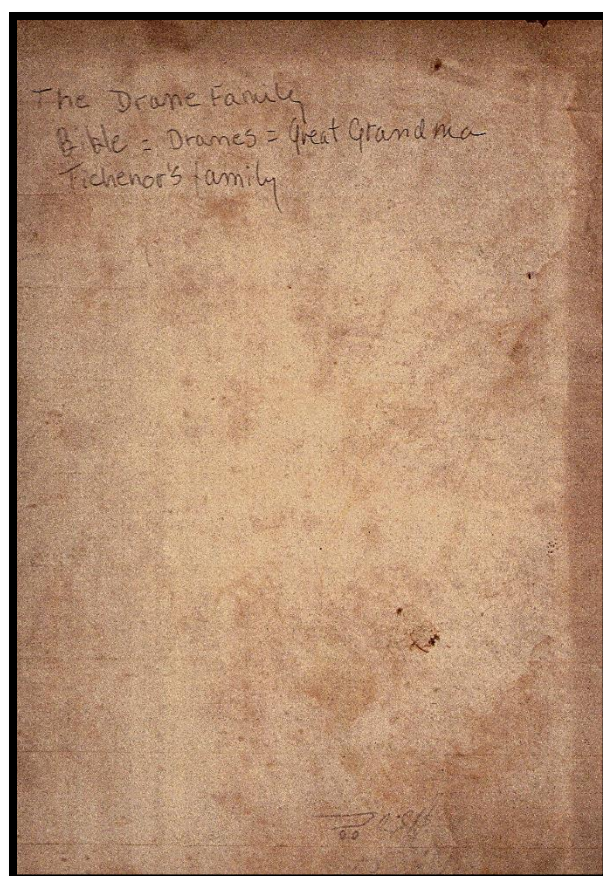 The Drane Family
Bible = Dranes = Great Grandma
Tichenor's family